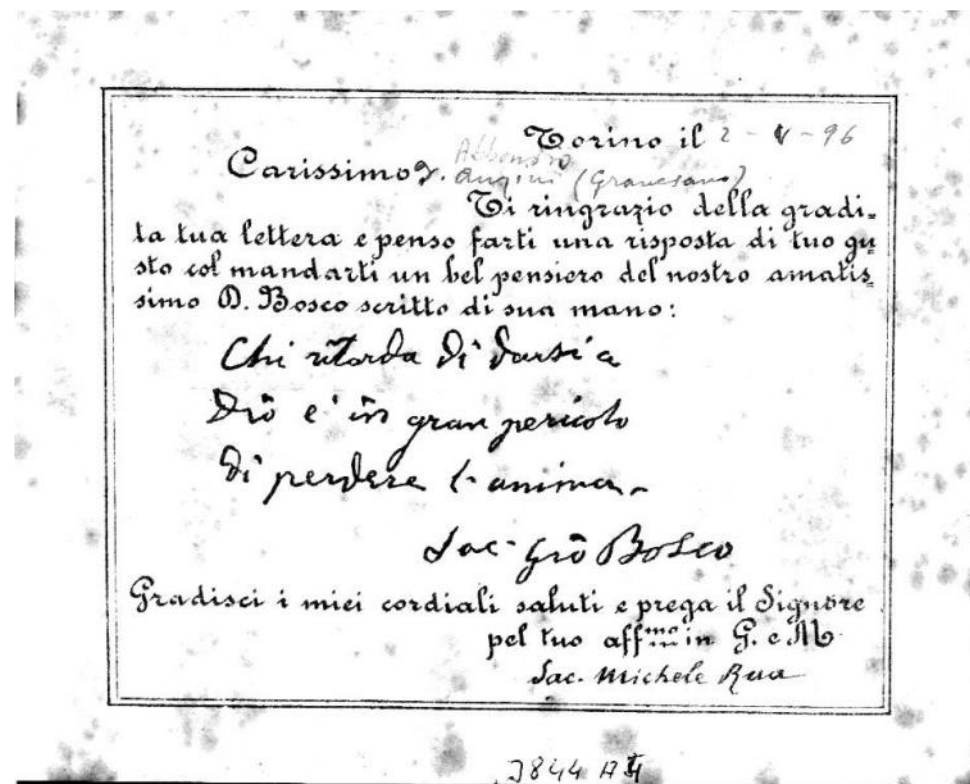 Torino il 2 - V - 96
Carissimo D. Angini (Gravesano)
Ti ringrazio della gradi=
ta tua lettera e penso farti una risposta di tuo gu
sto col mandarti un bel pensiero del nostro amatis=
simo D. Bosco scritto di sua mano:
Chi ritarda di darsi a
Dio è in gran pericolo
di perdere l'anima.
Sac. Gio Bosco
Gradisci i miei cordiali saluti e prega il Signore
pel tuo aff.mo in G. e M.
Sac. Michele Rua